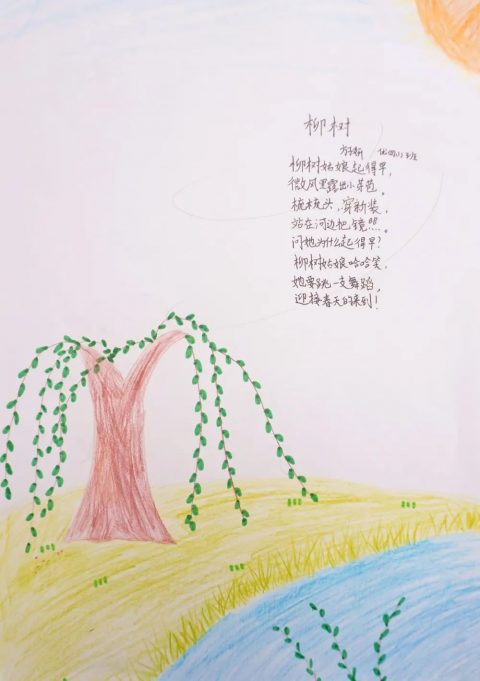 柳树
柳树姑娘起得早，
微风里露出小芽苞。
梳梳头，穿新装，
站在河边把镜照。
问她为什么起得早？
柳树姑娘哈哈笑，
她要跳一支舞蹈，
迎接春天的来到！